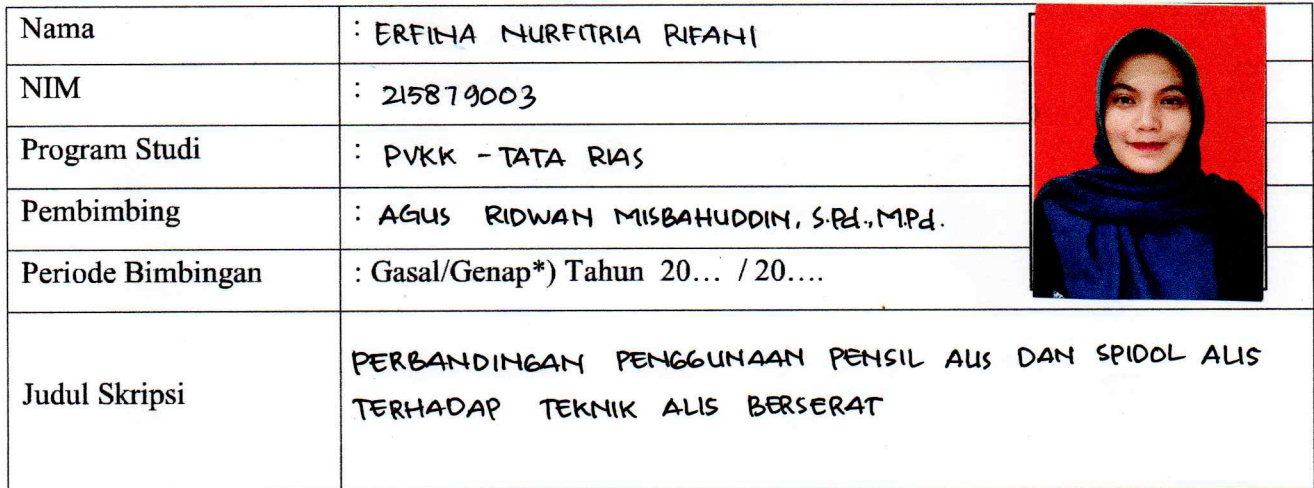 Nama : ERFINA NURFITRIA RIFANI
NIM : 215879003
Program Studi : PVKK - TATA RIAS
Pembimbing : AGUS RIDWAN MISBAHUDDIN, S.Pd., M.Pd.
Periode Bimbingan : Gasal/Genap*) Tahun 20... / 20....
Judul Skripsi PERBANDINGAN PENGGUNAAN PENSIL ALIS DAN SPIDOL ALIS
TERHADAP TEKNIK ALIS BERSERAT